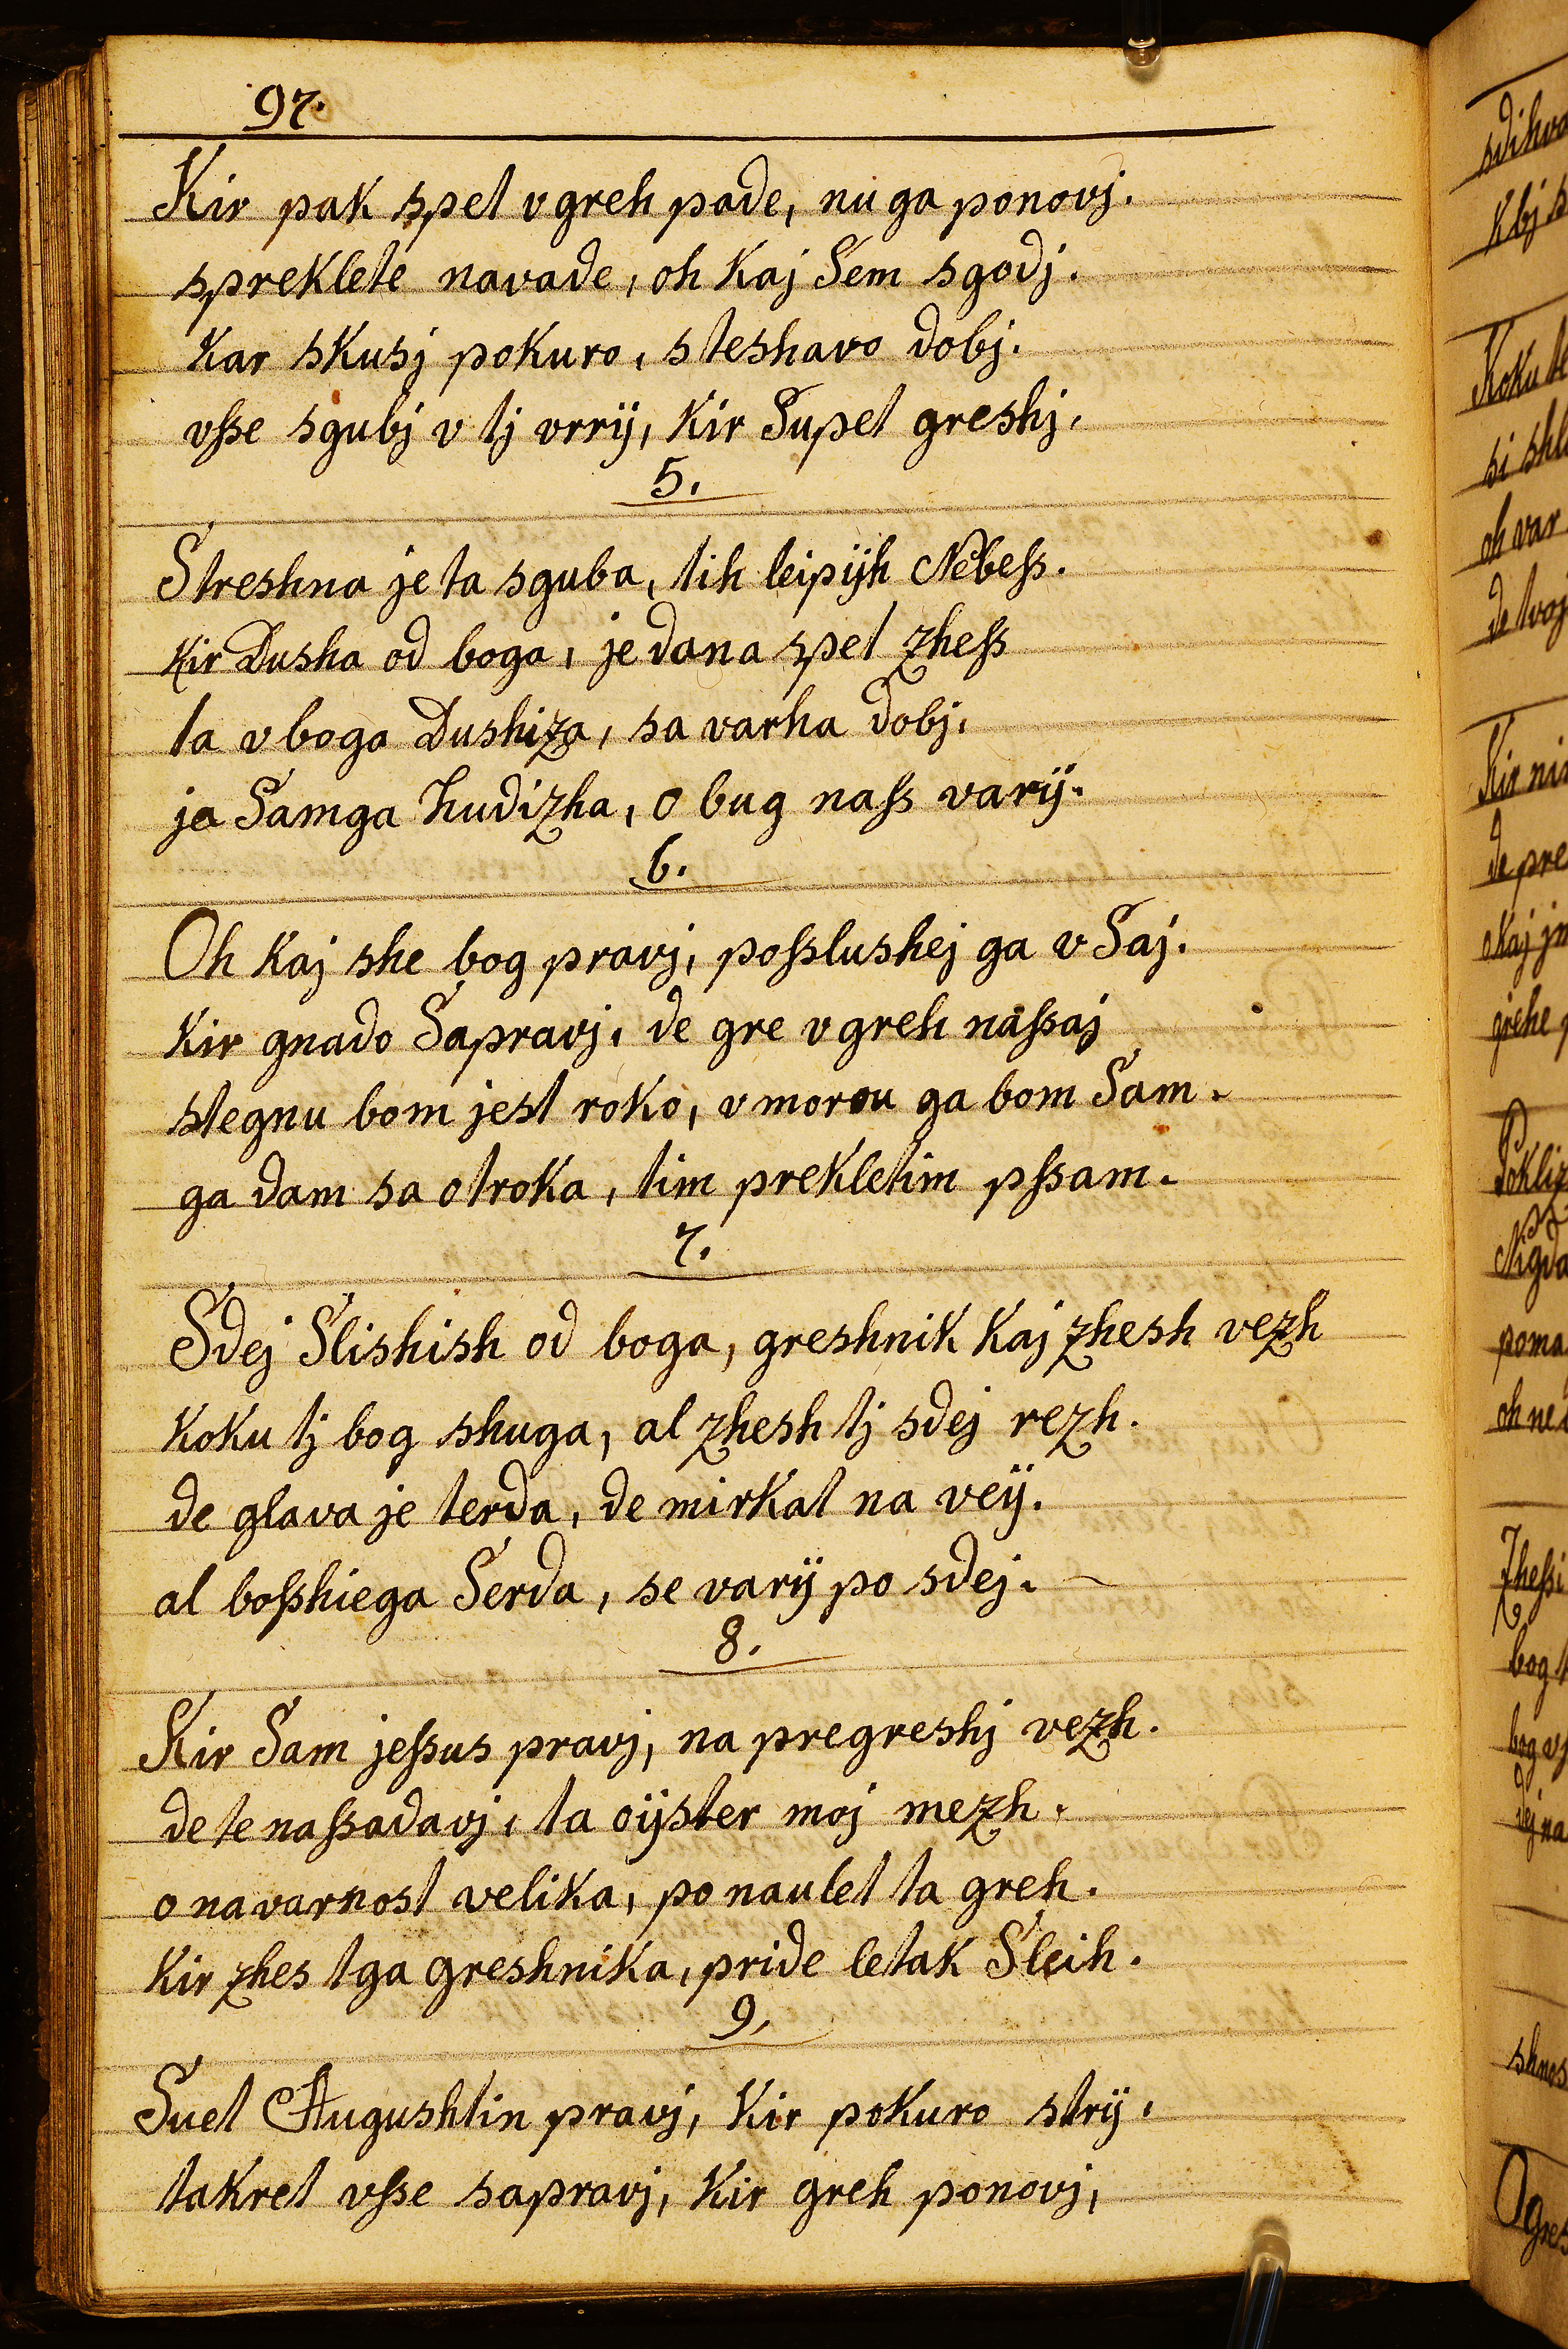 97.
Kir pak spet v greh pade, nu ga ponovj.
spreklete navade, oh kaj Sem sgodj.
kar skusj pokuro, steshavo dobj.
vſse sgubj v tj vrrÿ, kir Supet greshj.
5.
Streshna je ta sguba, tih leipÿh Nebeſs.
kir Dusha od boga, je dana spet zheſs
ta v boga Dushiza, sa varha dobj.
ja Samga hudizha, o bug naſs varÿ.
6.
Oh kaj she bog pravj, poſslushej ga vSaj.
kir gnado Sapravj, de gre v greh naſsaj
stegnu bom jest roko, vmorou ga bom Sam.
ga dam sa otroka, tim prekletim pſsam.
7.
Sdej Slishish od boga, greshnik kaj zhesh vezh
koku tj bog shuga, al zhesh tj sdej rezh.
de glava je terda, de mirkat na veÿ.
al boſshiega Serda, se varÿ po sdej.
8.
Kir Sam jeſsus pravj, na pregreshj vezh.
de te naſsadavj, ta oÿster moj mezh.
o navarnost velika, ponaulet ta greh.
kir zhes tga greshnika, pride letak Sleih.
9.
Suet Augushtin pravj, kir pokuro strÿ.
takret vſse sapravj, kir greh ponovj,